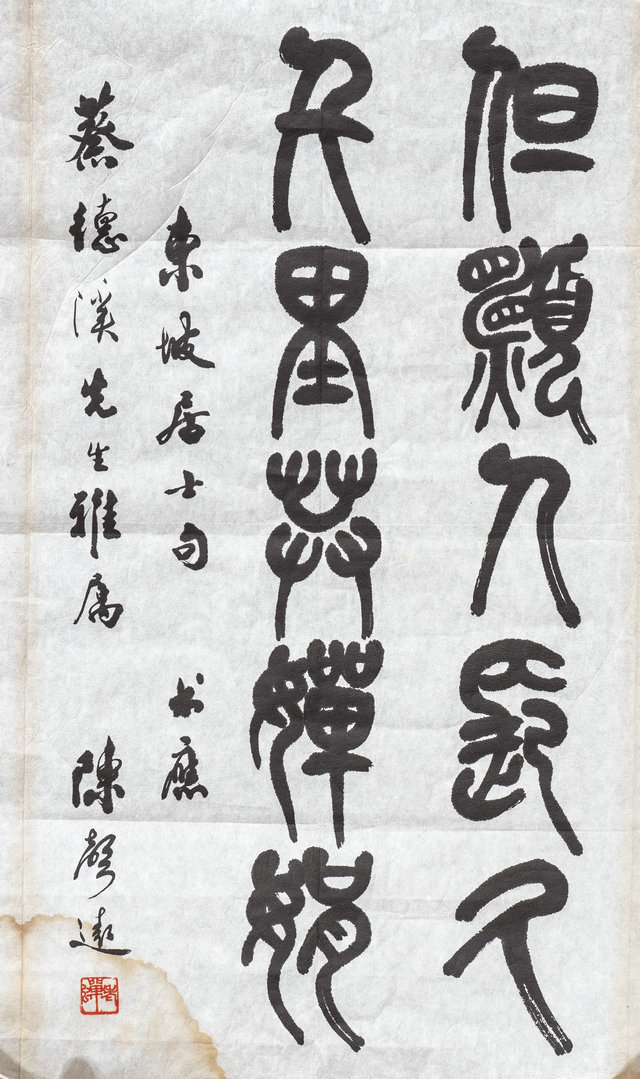 但願人長久
千里共嬋娟
東坡居士句 书應
蔡德溪先生雅属 陳聲遠